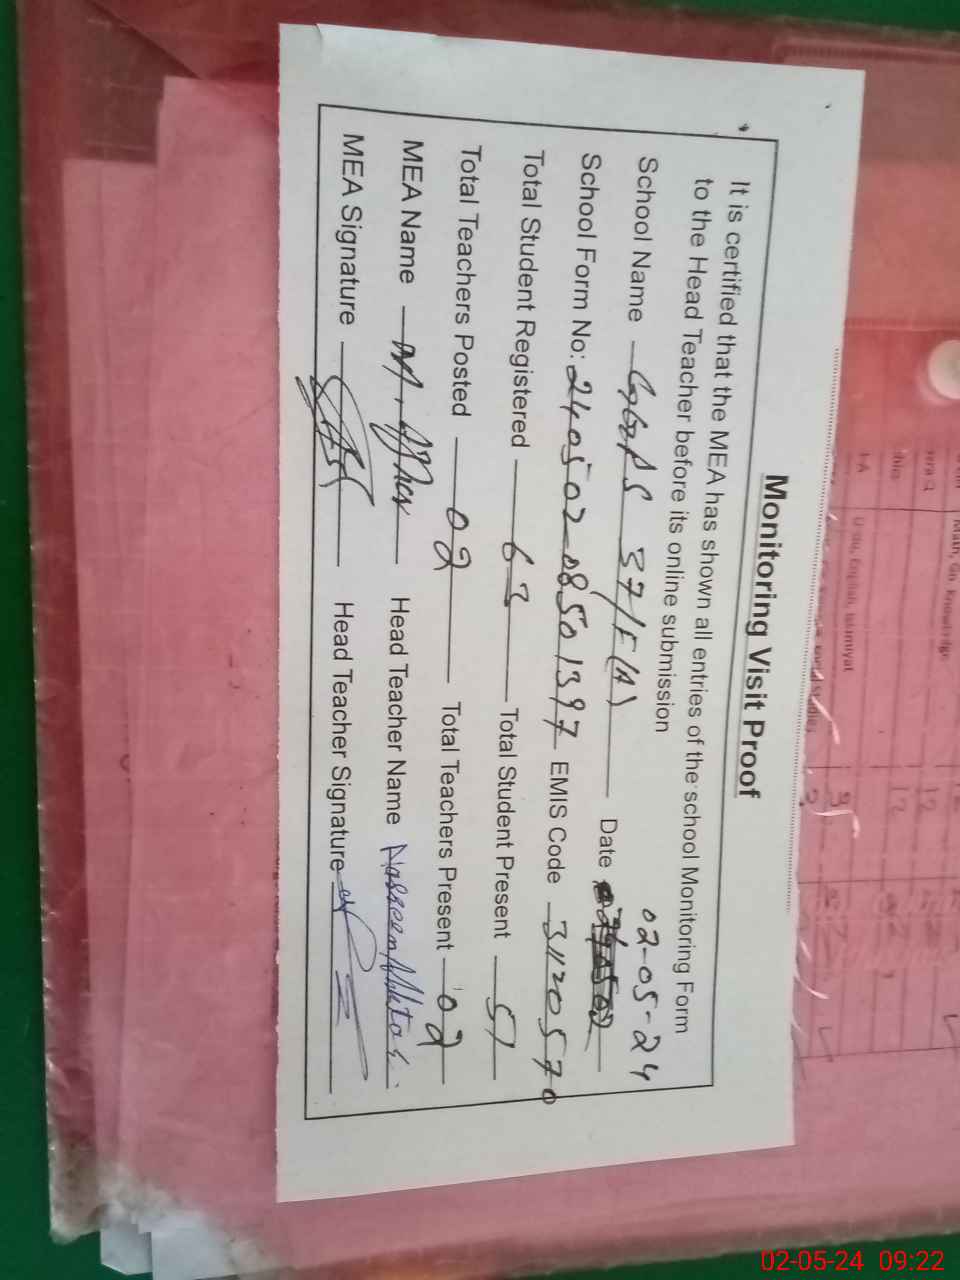 Monitoring Visit Proof
It is certified that the MEA has shown all entries of the school Monitoring Form
to the Head Teacher before its online submission
02-05-24
School Name GGPS 37/F(A) Date
School Form No: 240502-08501397 EMIS Code 31120570
Total Student Registered 63 Total Student Present 51
Total Teachers Posted 02 Total Teachers Present 02
MEA Name M. Head Teacher Name Nasreen Akhtar
MEA Signature Head Teacher Signature
Urdu, English, Islamiyat
02-05-24 09:22